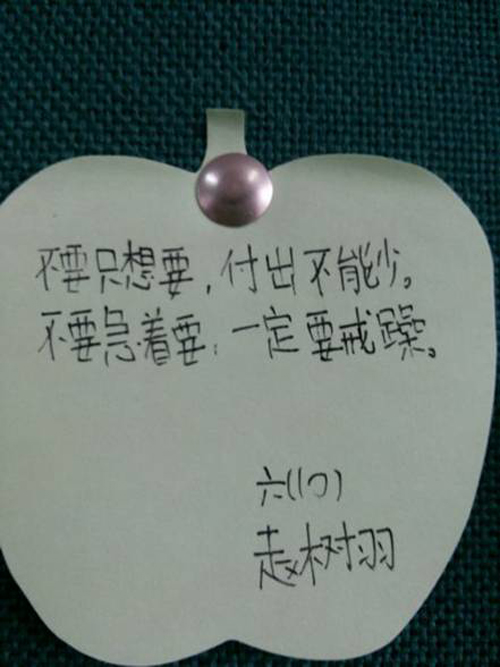 不要只想要，付出不能少。
不要急着要，一定要戒躁。
六(10)
赵树羽